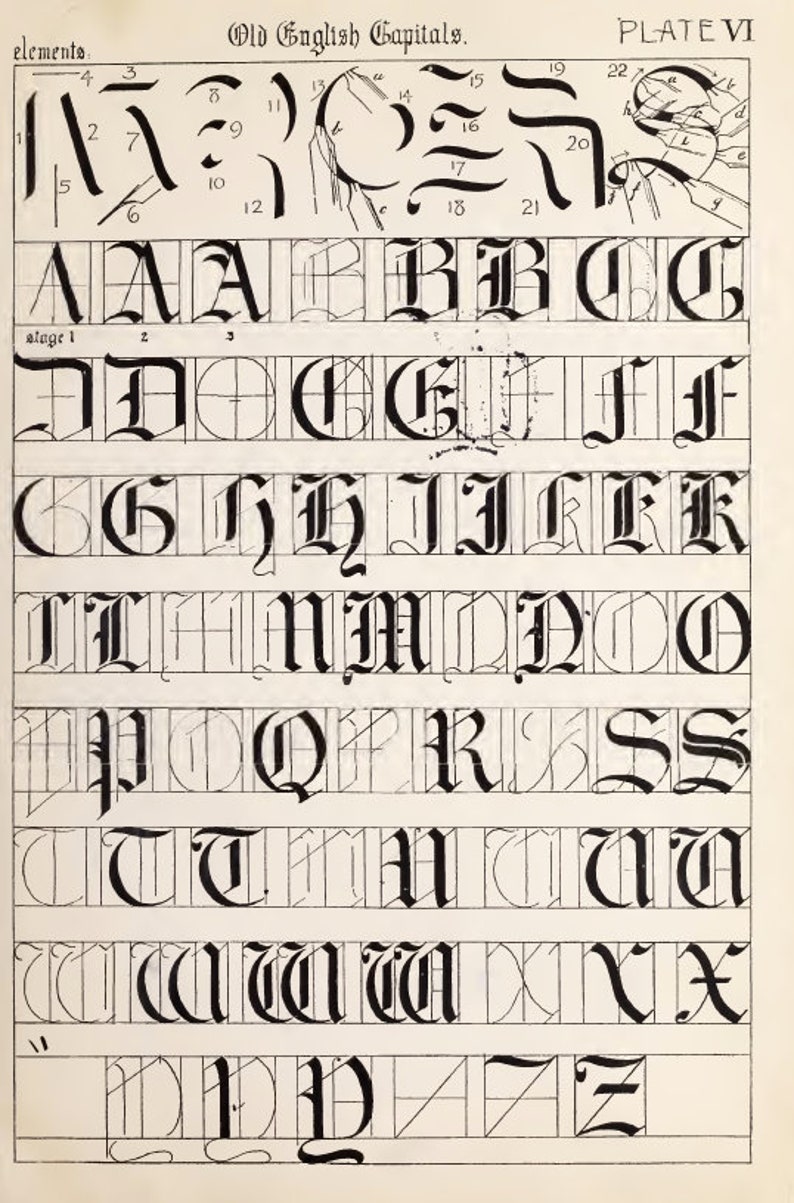 Old English Capitals. PLATE VI
elements:
1 2 3 4 5 6 7 8 9 10 11 12 13 14 15 16 17 18 19 20 21 22
a b c a b c d e f g h i
A A A B B B C C
stage 1 2 3
D D E E E F F F
G G H H I I K K K
L L M M M N N O O
P P Q Q R R S S S
T T T U U V V V
W W W W X X X
Y Y Y Z Z Z